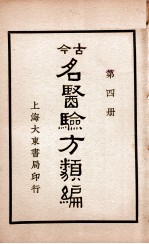 第四册
古今
名醫驗方類編
上海大東書局印行